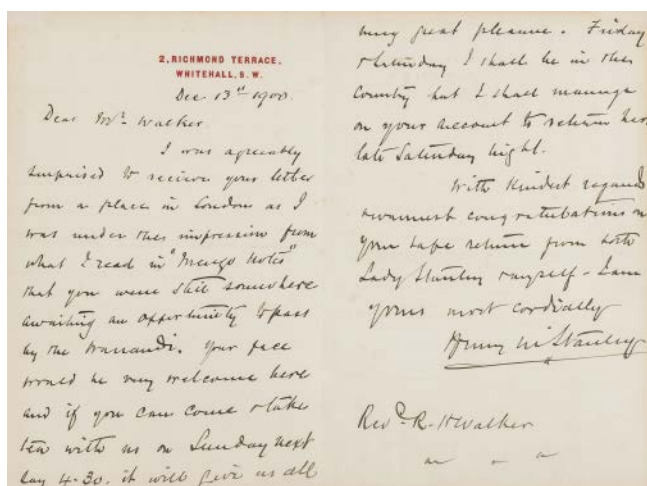 2, RICHMOND TERRACE.
WHITEHALL, S.W.
Dec 13th 1900.
Dear Mr. Walker
I was agreeably
surprised to recieve your letter
from a place in London as I
was under the impression from
what I read in "Mengo Notes"
that you were still somewhere
awaiting an opportunity to pass
by the Wanandi. Your face
would be very welcome here
and if you can come & take
tea with us on Sunday next
say 4-30. it will give us all
very great pleasure. Friday
& Saturday I shall be in the
Country but I shall manage
on your account to return here
late Saturday night.
With Kindest regards
& warmest congratulations on
your safe return from both
Lady Stanley & myself - I am
yours most cordially
Henry M Stanley
Revd. R. H Walker